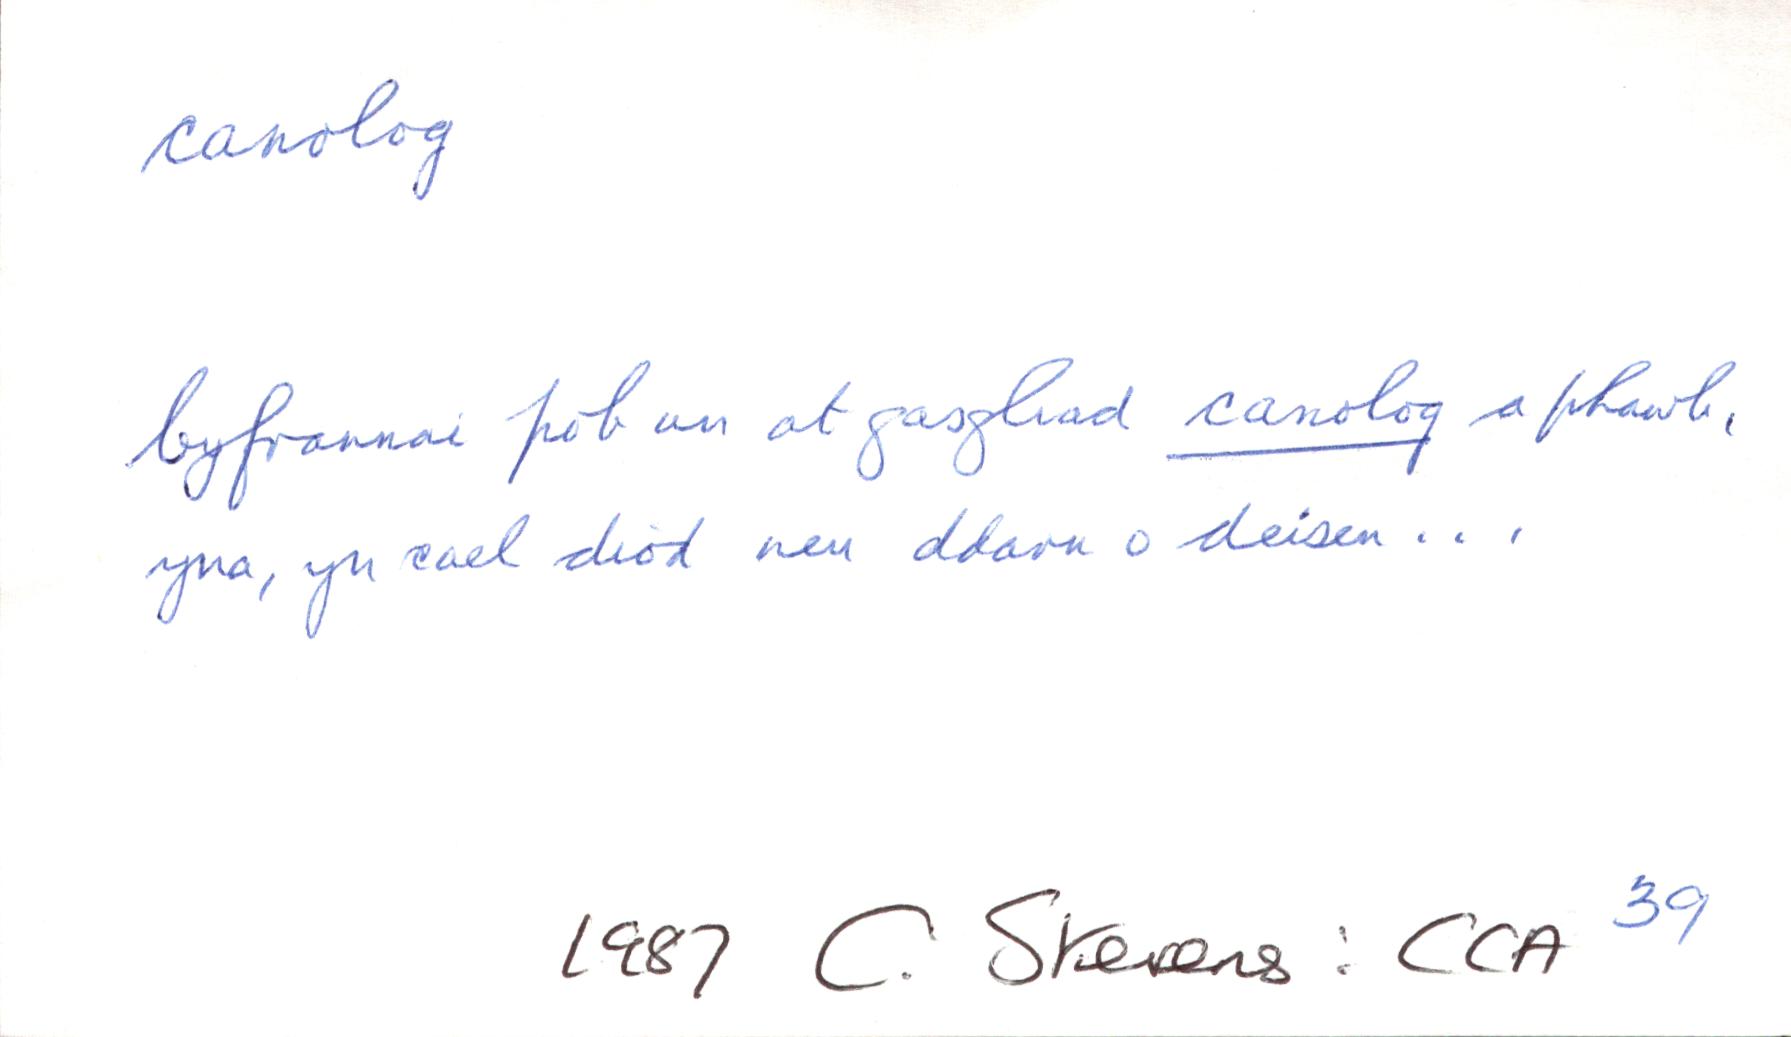 canolog
Cyfrannai pob un at gasgliad canolog a phawb,
yna, yn cael diod neu ddarn o deisen...
1987 C. Stevens: CCA 39